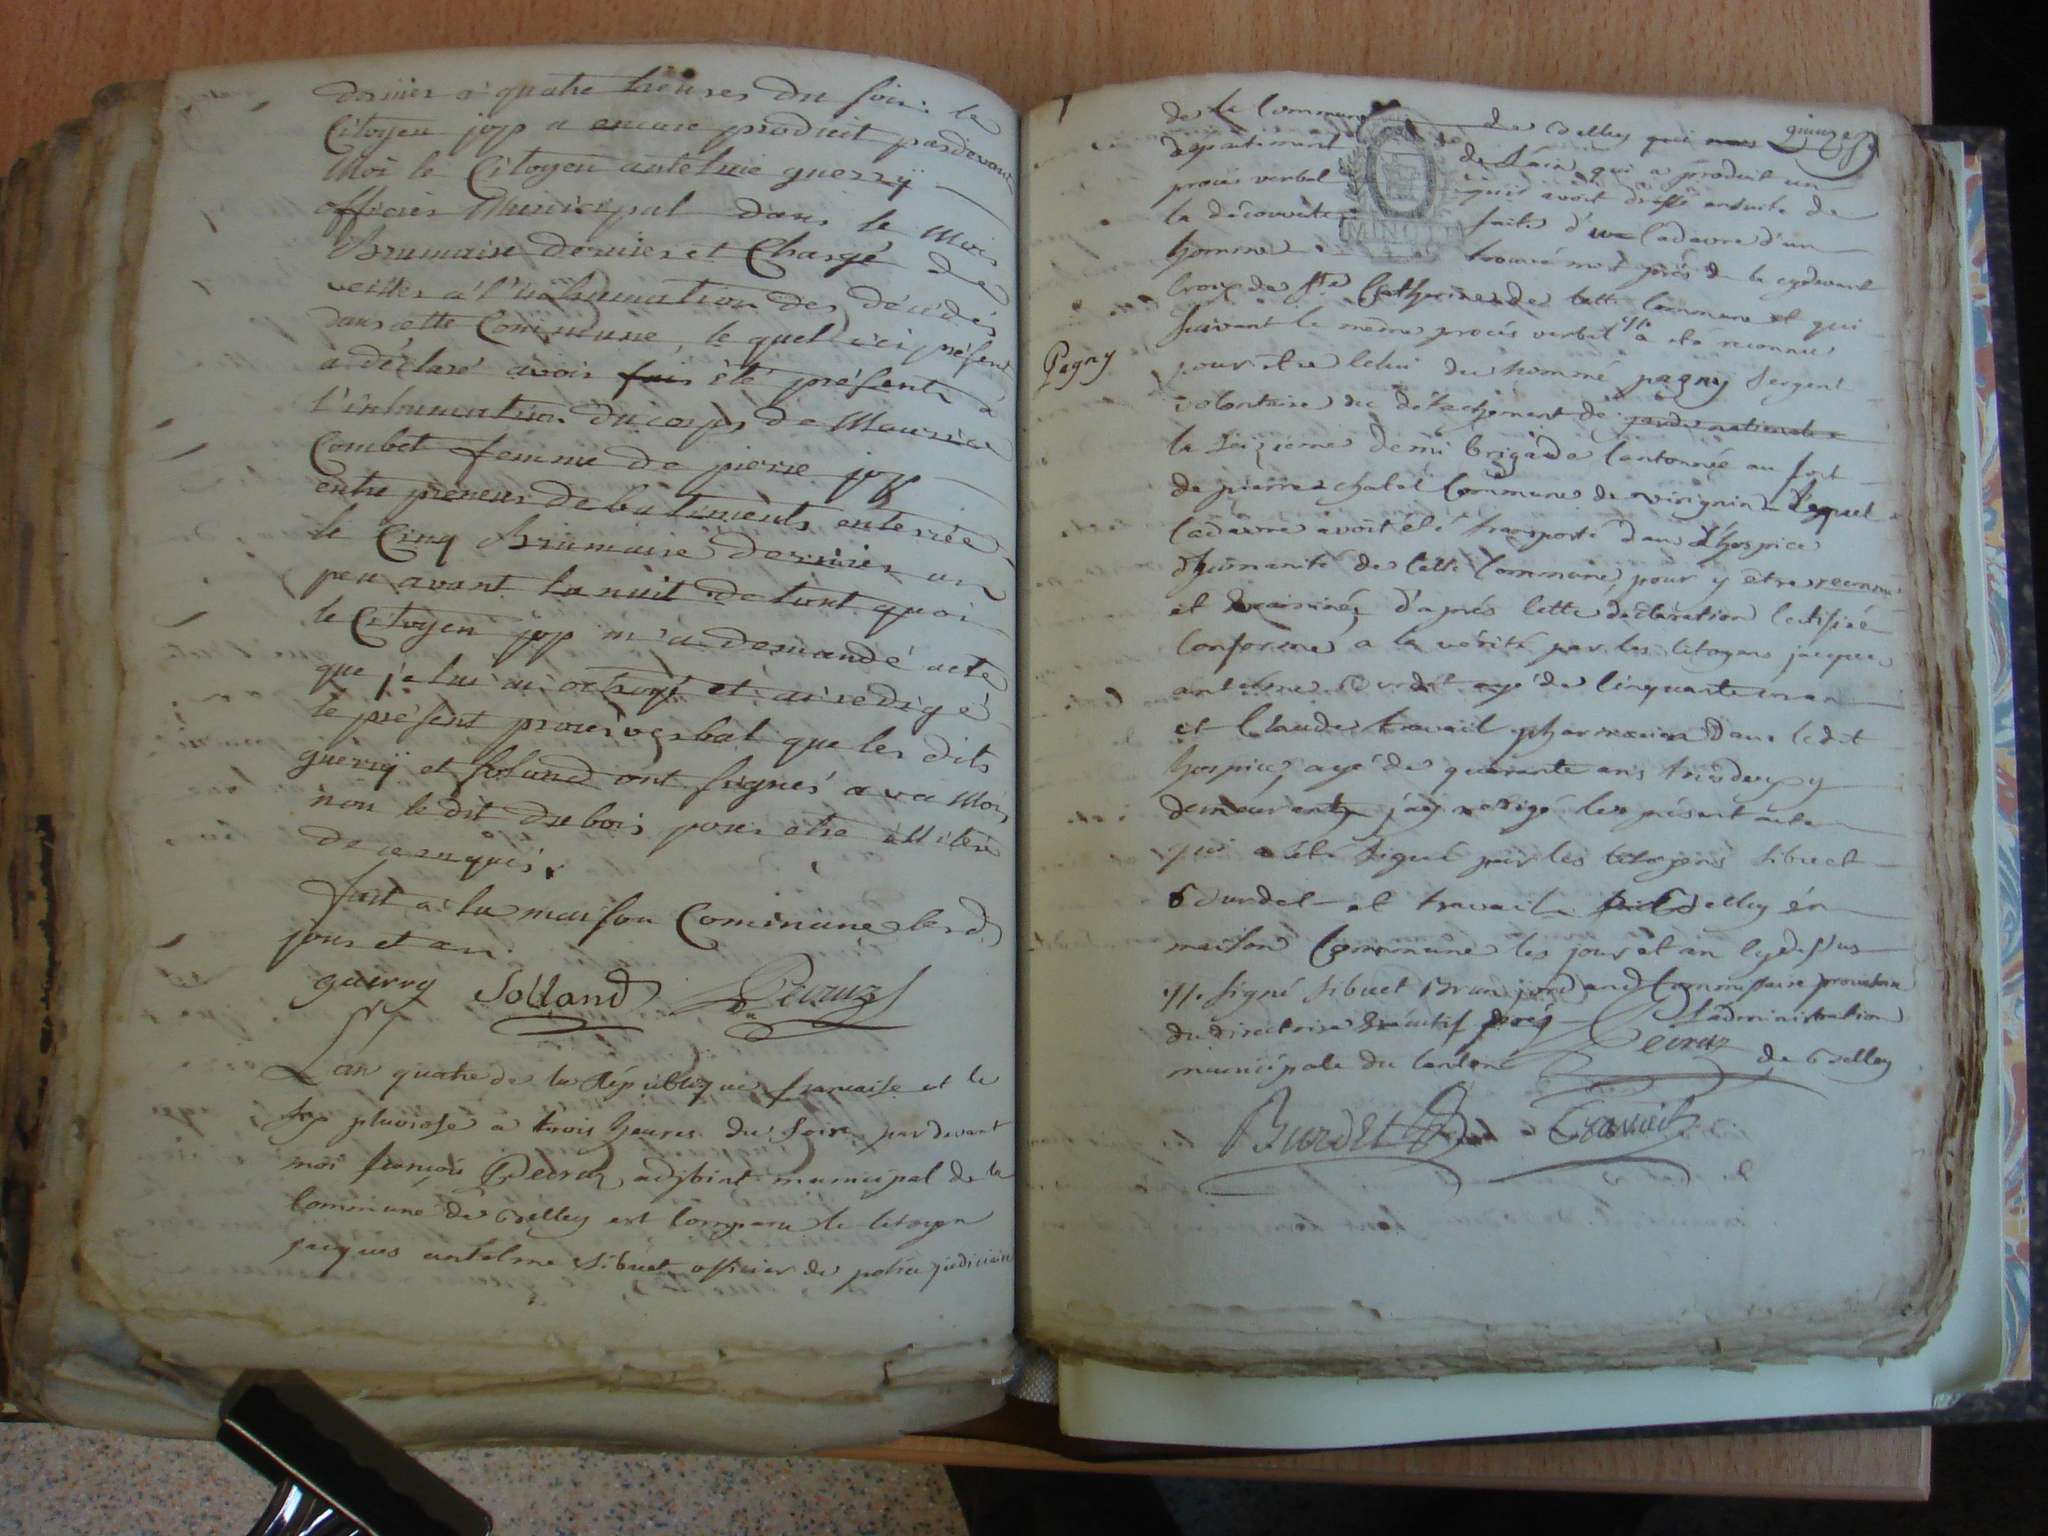 dernier a quatre heures du soir. le
Citoyen jopp a encore produit pardevant
Moi le Citoyen antelme guerry
officier Municipal dans le Mois
Brumaire dernier et Chargé de
veiller a l'inhumation des décédés
dans cette Commune, le quel ici présent
a déclaré avoir fais été présent a
l'inhumation du corps de Maurice
Combet femme de pierre jopp
entrepreneur de batiments enterrée
le Cinq Brumaire dernier un
peu avant la nuit de tout quoi
le Citoyen jopp m'a demandé acte
que je lui ai octroyé et ai rédigé
le présent procès verbal que les dits
guerry et Solland ont signés avec Moi
non le dit dubois pour etre illiteré
de ce enquis.
fait a la maison Commune lesd.
jour et an.
guerry Solland Peiruz
L'an quatre de la République francaise et le
sep pluviose a trois heures du soir pardevant
moi françois Peiruz adjoint municipal de la
Commune de Belley est Comparu le Citoyen
jacques antelme Sibuet officier de police judiciaire
quinze
de la Commune de Belley qui
département de Lain, qui a produit un
procès verbal qu'il avoit dressé ensuite de
la découverte faite d'un Cadavre d'un
homme trouvé mort près de la cydevant
Croix de Ste Catherine de cette Commune et qui
suivant le même procès verbal .//. a été reconnu
Pagny
pour etre celui du nommé pagny Sergent
volontaire du détachement de garde nationale
la Seizieme demi brigade Cantonnée au fort
de pierre chatel Commune de virignin Lequel
Cadavre avoit été transporté dans L'hospice
d'humanité de cette Commune pour y etre reconnu
et examiné, d'après cette declaration certifiée
Conforme a la vérité par les citoyens jacques
antelme Burdet agé de Cinquante un an
et Claude travail pharmacien dans ledit
hospice, agé de quarante ans tous deux y
demeurants, j'ay redigé le présent acte
qui a été signé par les Citoyens Sibuet
Burdet et travail Belley en
maison Commune les jour et an cydessus
.//. signé Sibuet Brun jordand Commissaire provisoire
du directoire Exécutif près L'administration
municipale du Canton Peiruz de Belley
Burdet Travail